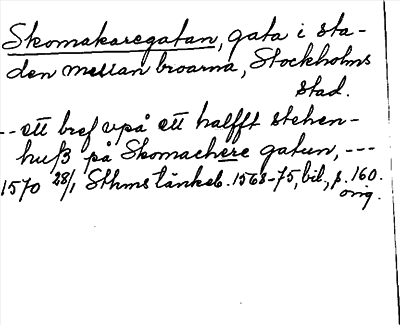 Skomakaregatan, gata i sta-
den mellan broarna, Stockholms
stad.
-- ett bref vpå ett halfft stehen-
huß på Skomachere gatun, ---
1570 28/1 Sthms tänkeb. 1568-75, bil., p. 160.
orig.